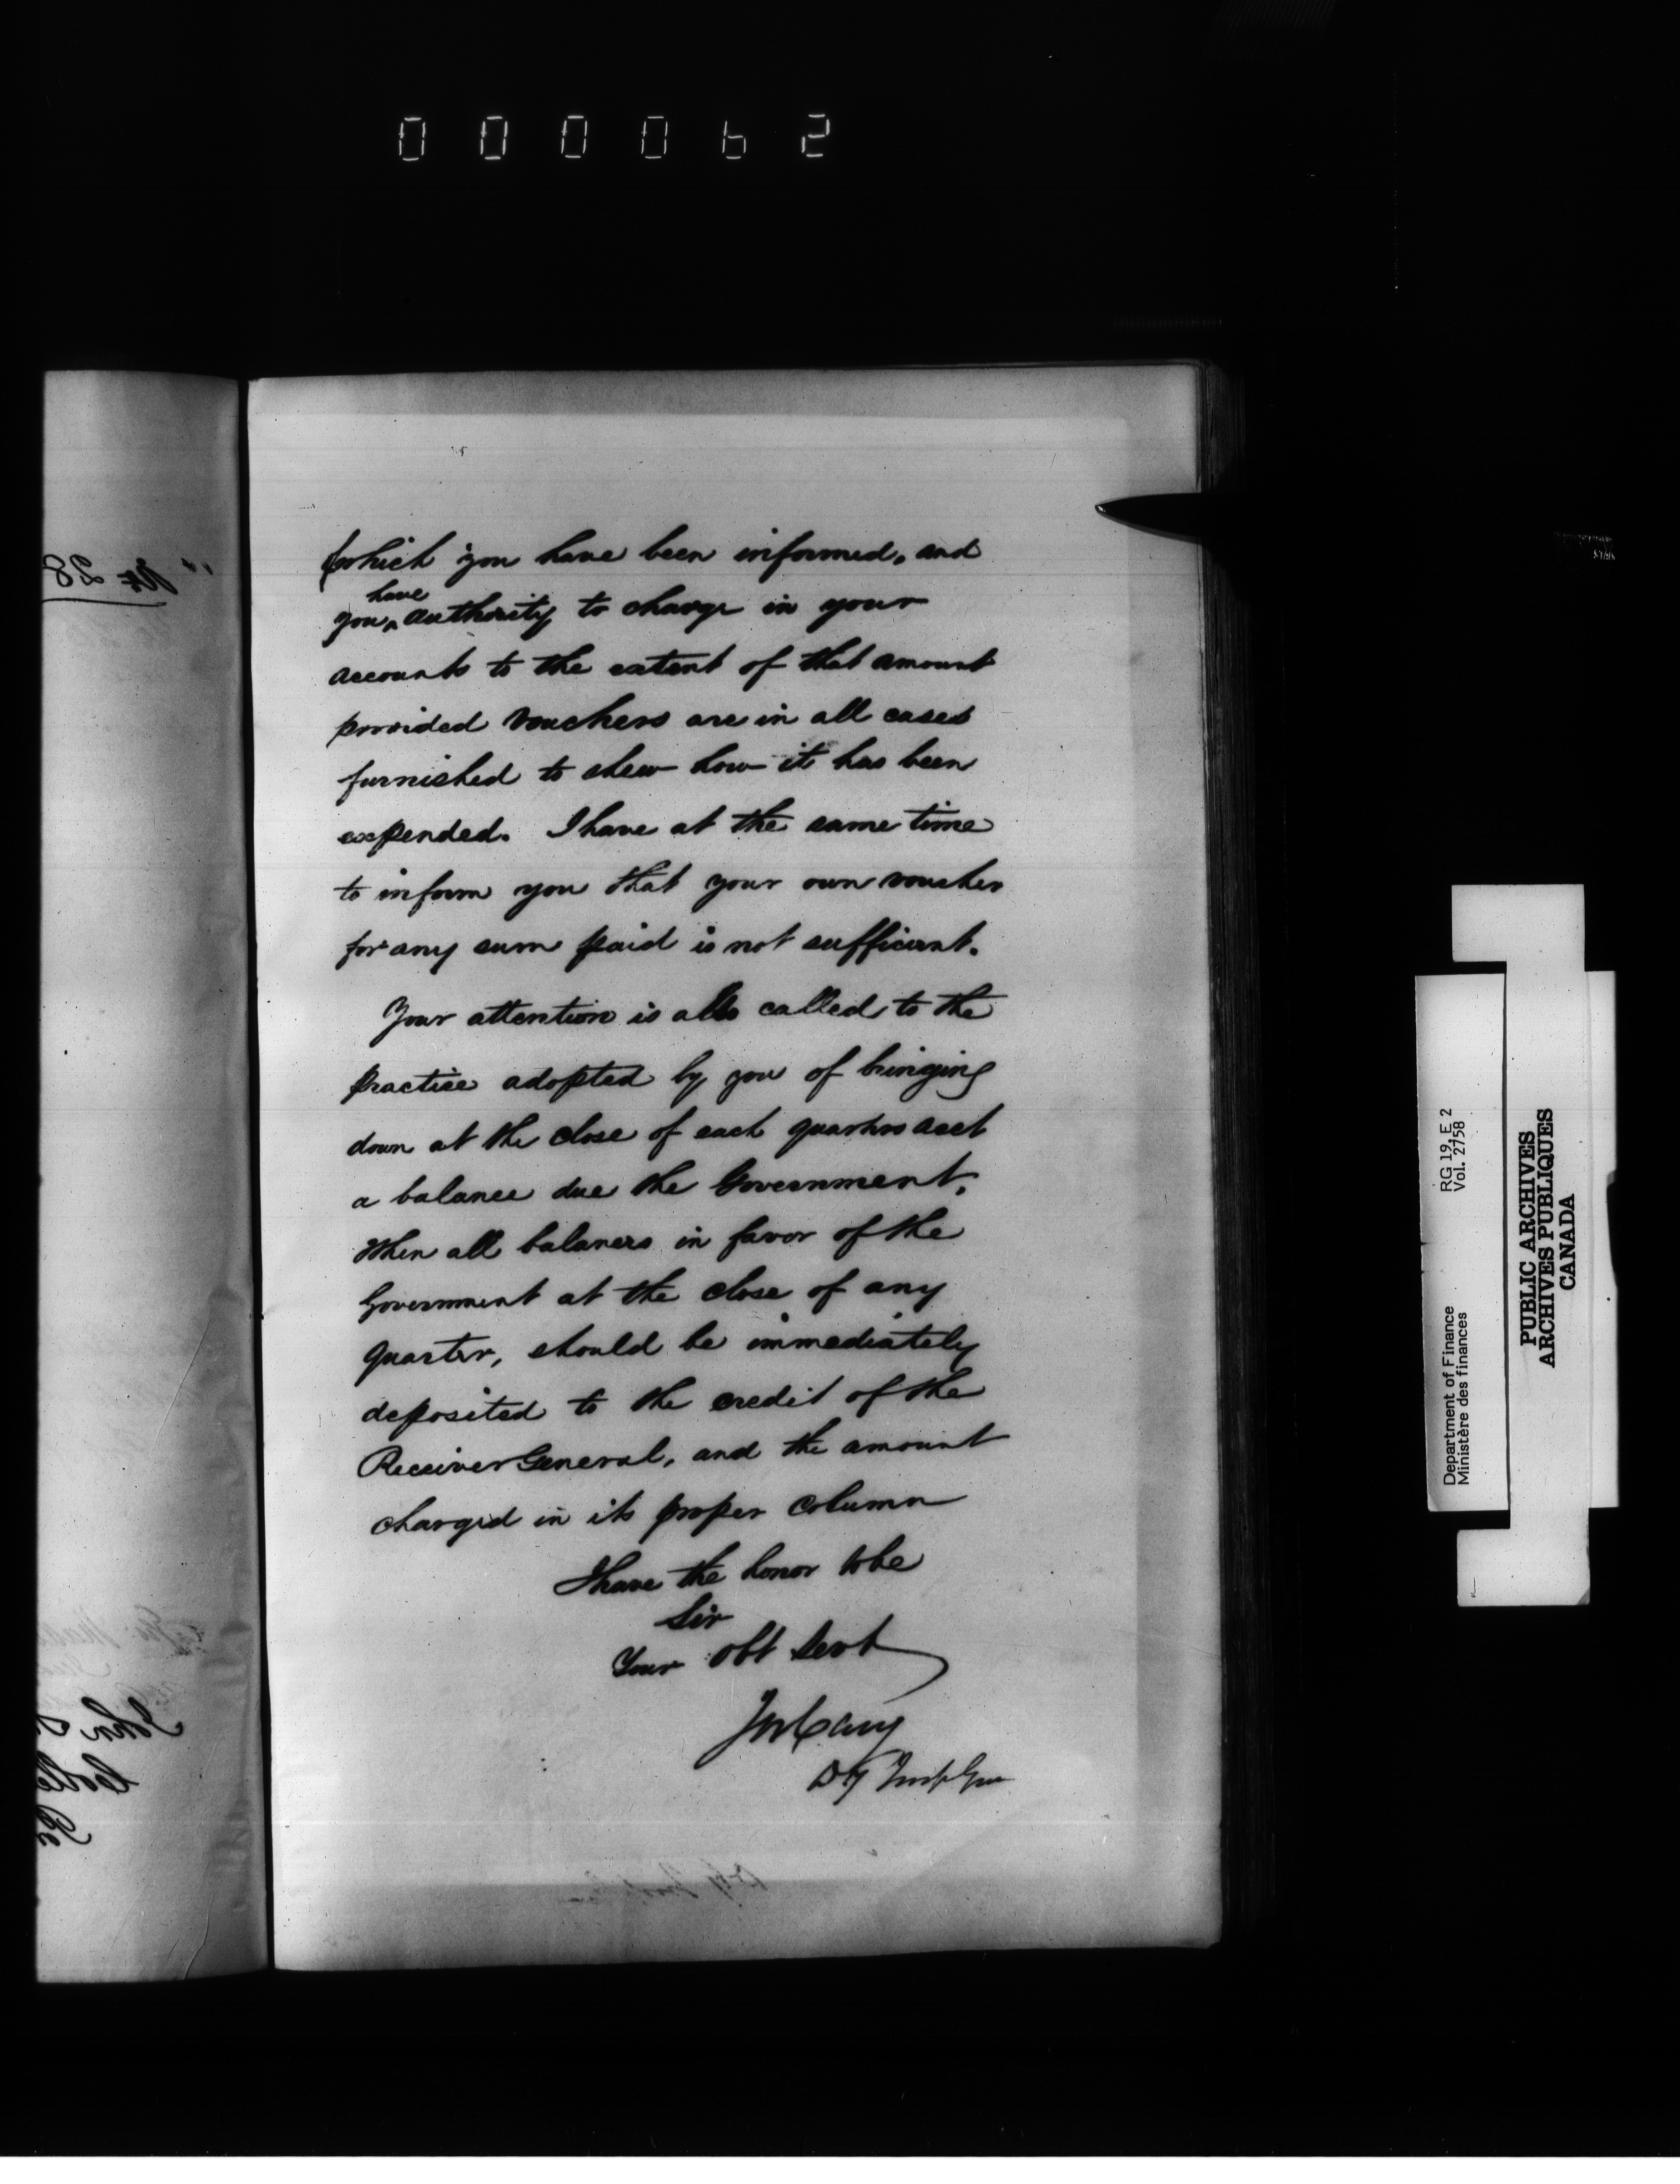 0 0 0 0 6 2
(which you have been informed, and
have
you ^ authority to charge in your
accounts to the extent of that amount
provided vouchers are in all cases
furnished to shew how it has been
expended. I have at the same time
to inform you that your own voucher
for any sum paid is not sufficient.
Your attention is also called to the
practice adopted by you of bringing
down at the close of each quarters acct
a balance due the Government.
When all balances in favor of the
Government at the close of any
quarter, should be immediately
deposited to the credit of the
Receiver General, and the amount
charged in its proper column
I have the honor to be
Sir
Your Obt Servt
Jos Cary
Dy Insp Gen
RG 19, E 2
Vol. 2758
Department of Finance
Ministère des finances
PUBLIC ARCHIVES
ARCHIVES PUBLIQUES
CANADA